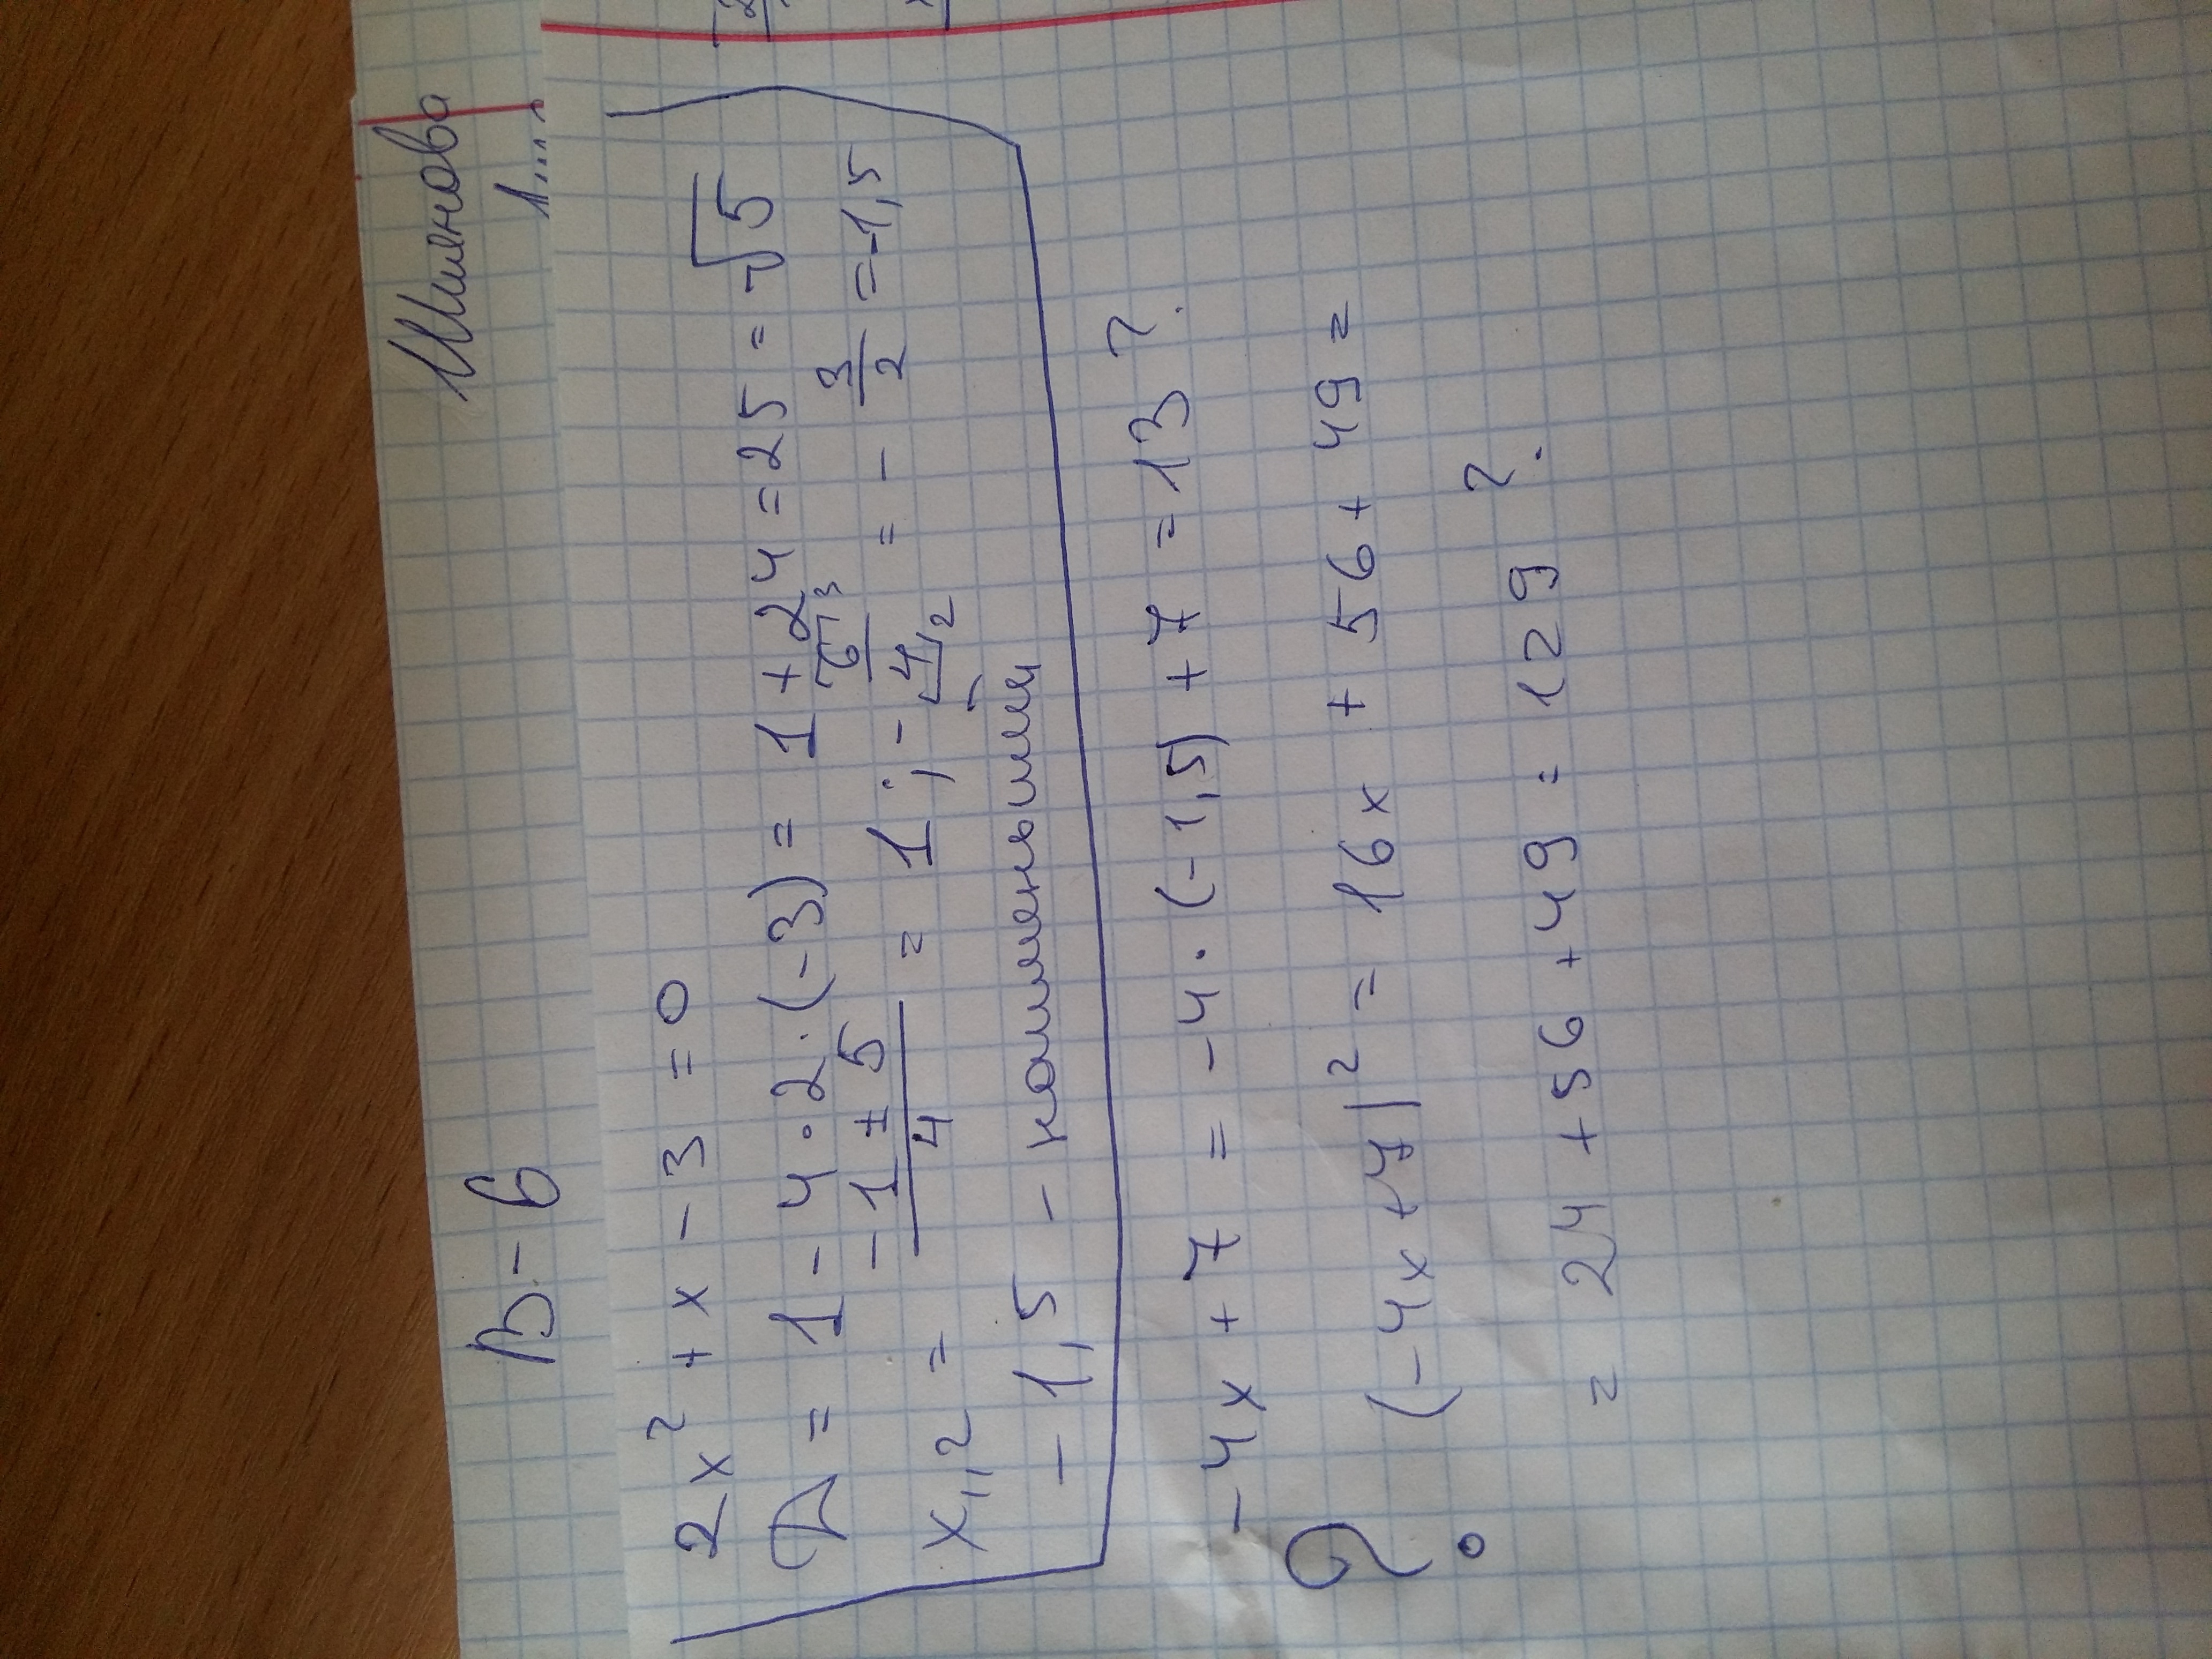 В-6 Шиянова
1....
2x² + x - 3 = 0
D = 1 - 4·2·(-3) = 1 + 24 = 25 = √5
x₁,₂ = (-1 ± 5)/4 = 1; - 6/4 = - 3/2 = -1,5
-1,5 - наименьший
-4x + 7 = -4·(-1,5) + 7 = 13 ?
? (-4x + 7)² = 16x + 56 + 49 =
= 24 + 56 + 49 = 129 ?